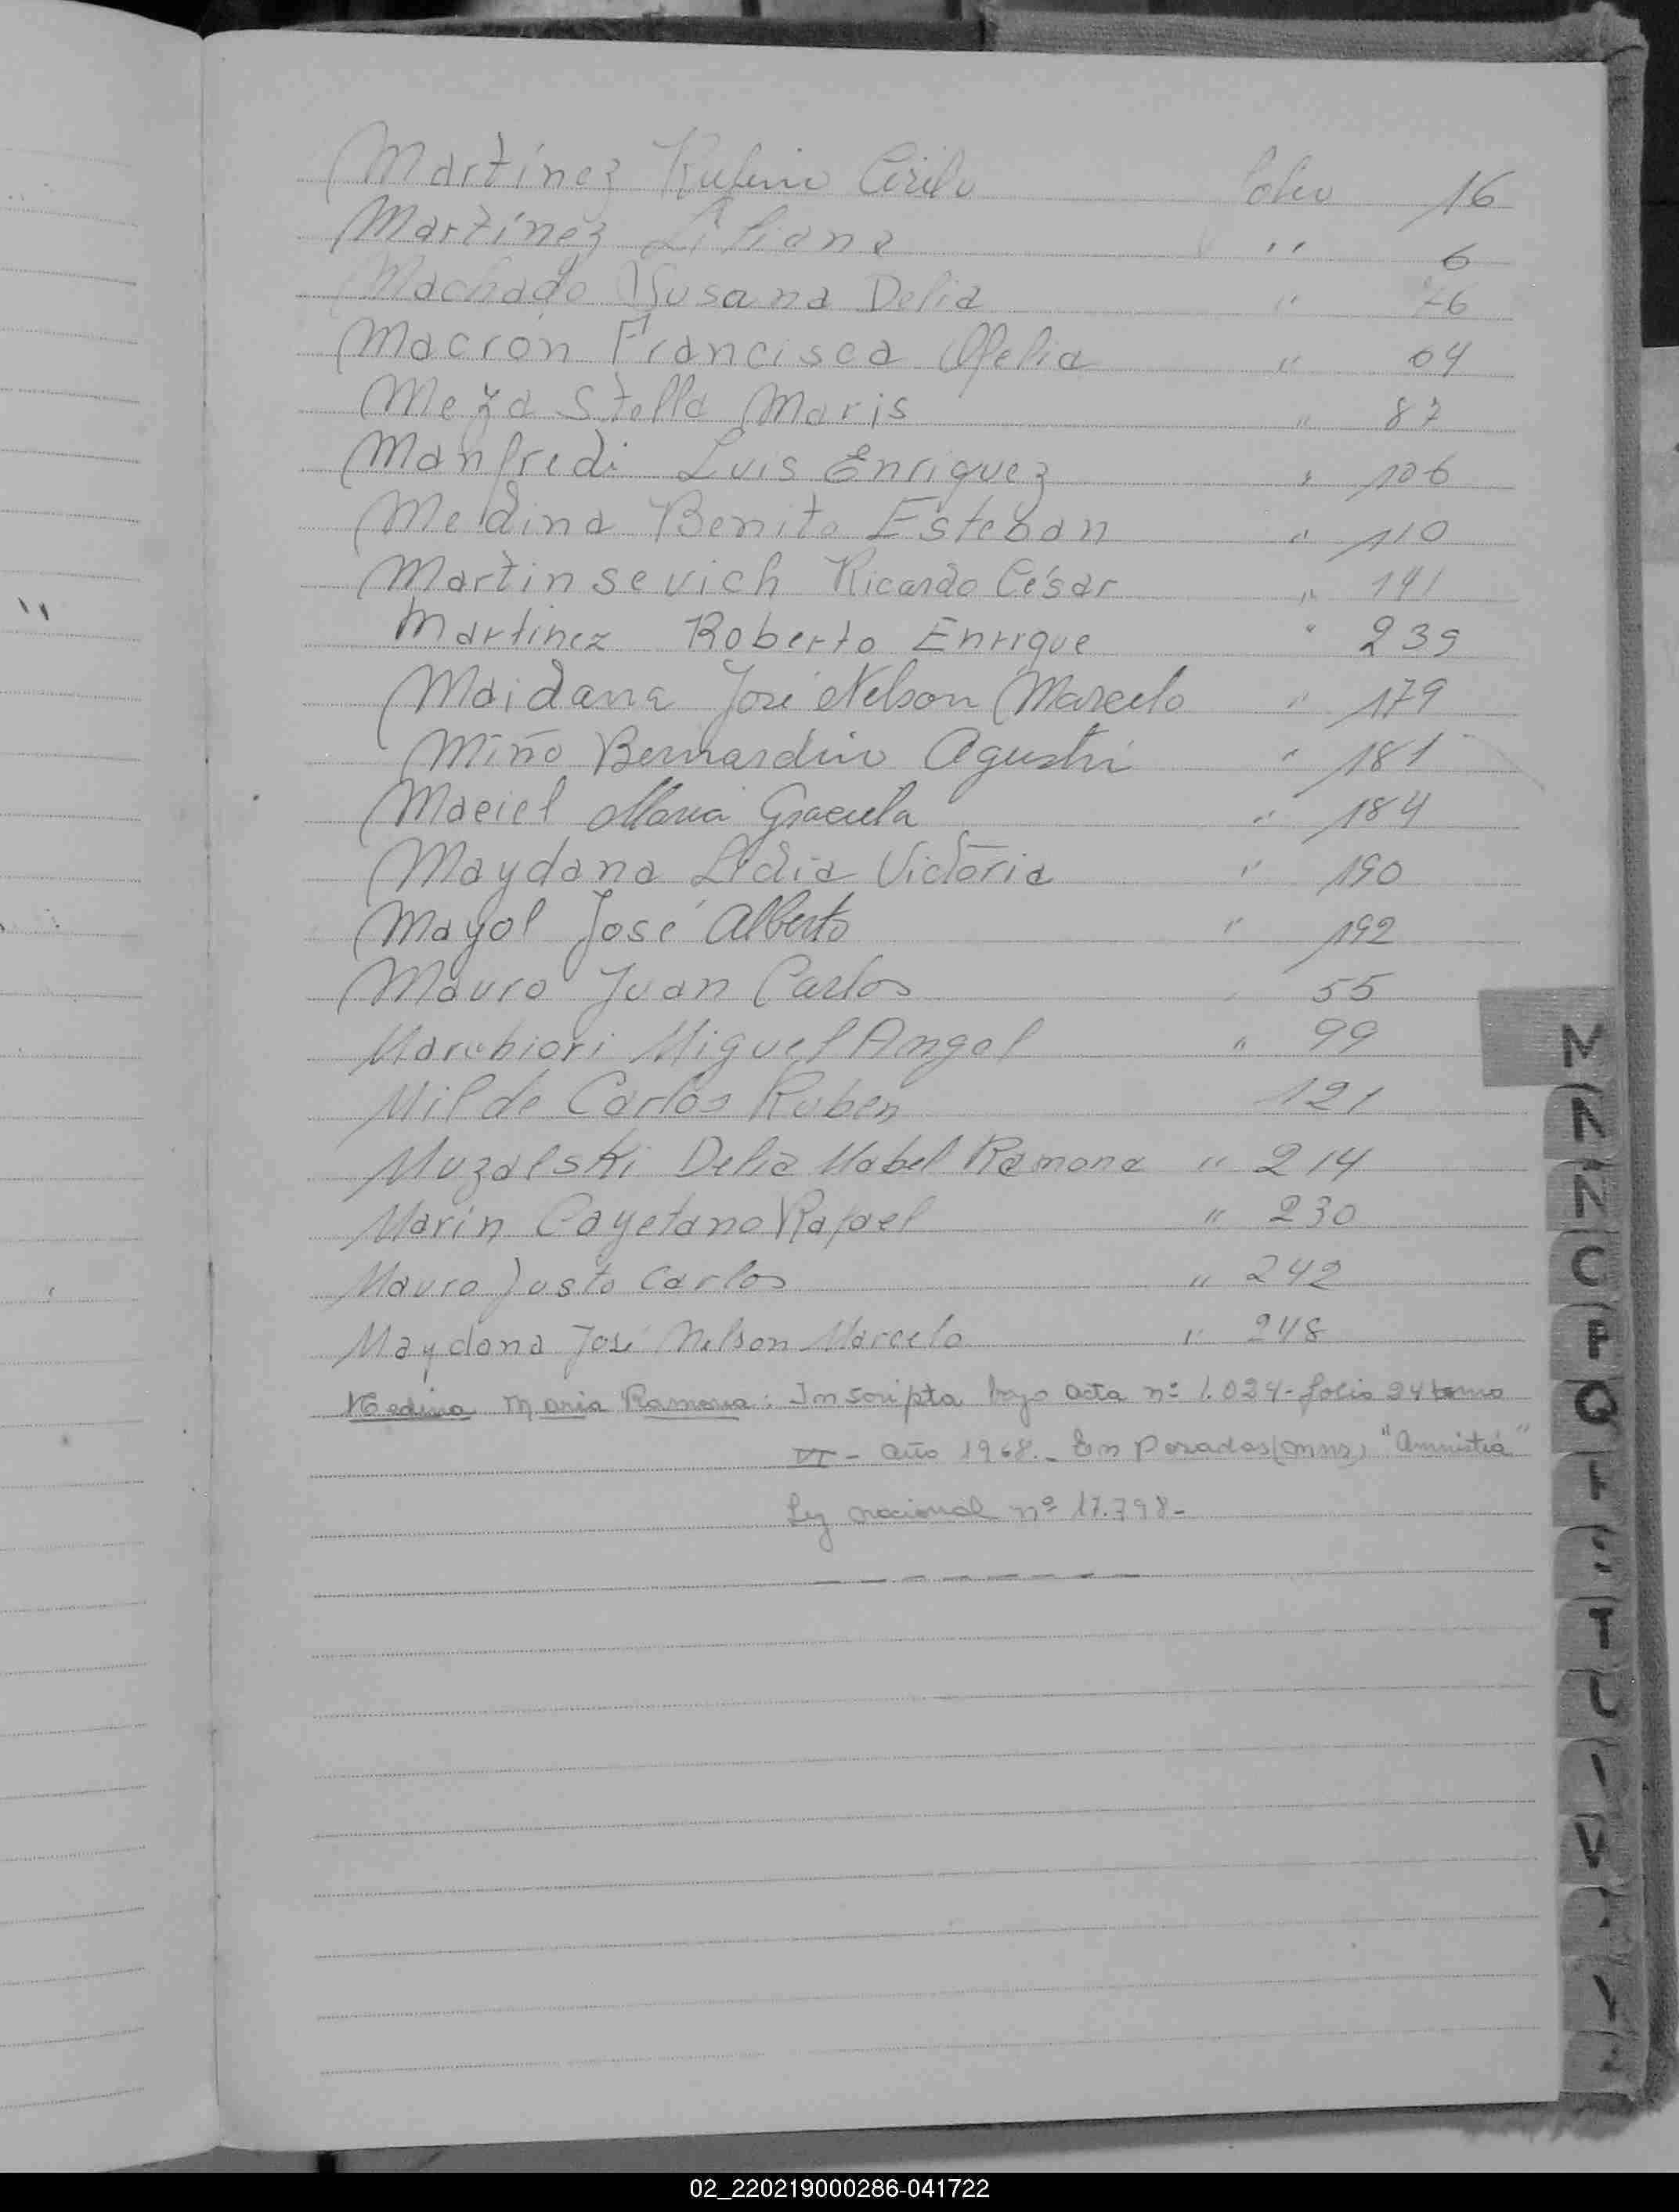 Martínez Rufino Cirilo Folio 16
Martínez Liliana " 6
Machado Susana Delia " 76
Macrón Francisca Ofelia " 64
Meza Stella Maris " 87
Manfredi Luis Enriquez " 106
Medina Benito Esteban " 110
Martinsevich Ricardo César " 141
Martinez Roberto Enrique " 239
Maidana José Nelson Marcelo " 179
Miño Bernardino Agustín " 181
Maciel Maria Graciela " 184
Maydana Lidia Victoria " 190
Mayol José Alberto " 192
Mauro Juan Carlos " 55
Marchiori Miguel Angel " 99
Milde Carlos Ruben 121
Muzalski Delia Mabel Ramona " 214
Marin Cayetano Rafael " 230
Mauro Justo Carlos " 242
Maydana José Nelson Marcelo " 248
Medina Maria Ramona: Inscripta bajo acta nº 1.024 - folio 24 tomo
VI - año 1968. - En Posadas (mnes) "Amnistía"
Ley nacional nº 17.798-
M
N
Ñ
C
P
Q
T
V
02_220219000286-041722